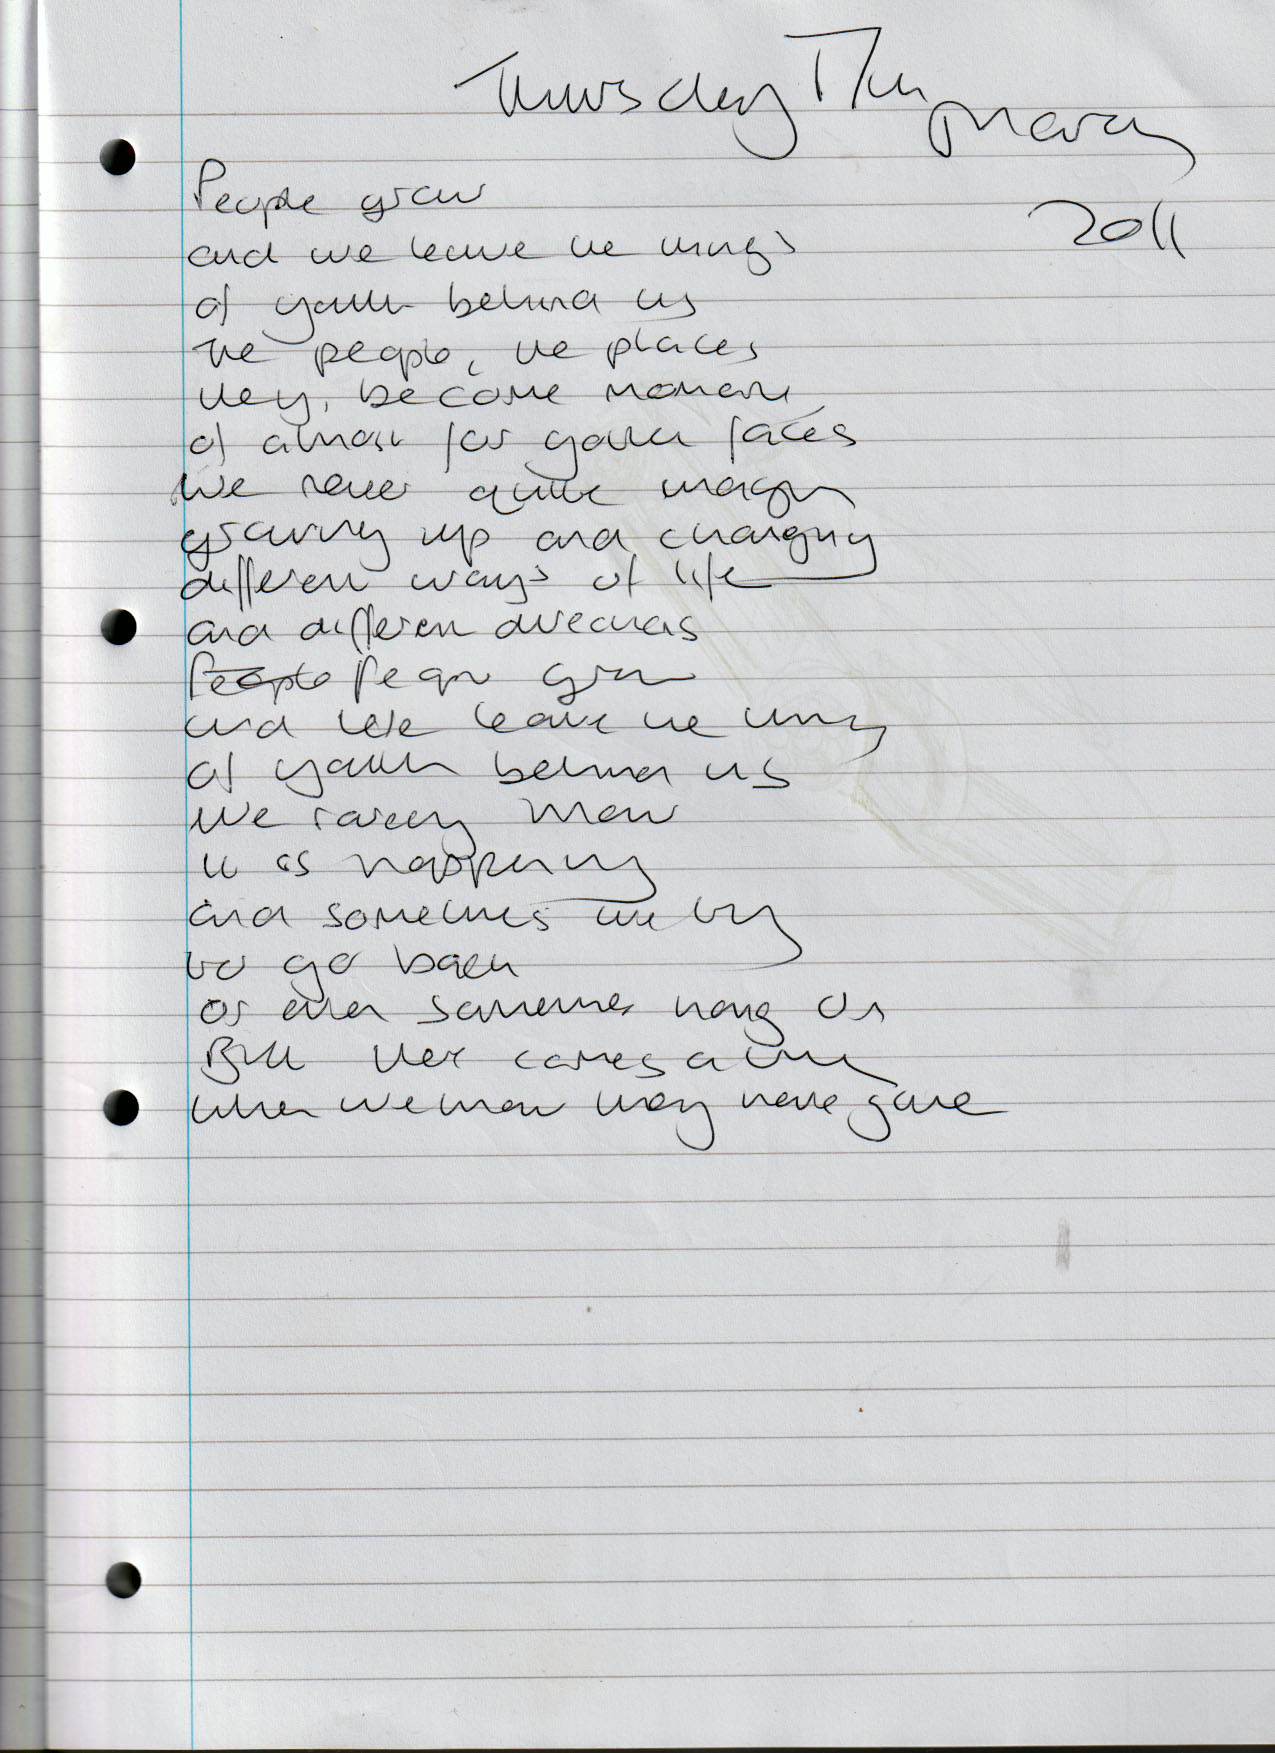 Thursday 17th March
2011
People grow
and we leave the things
of youth behind us
The people, the places
they, become memory
of almost forgotten faces
We never quite imagin
growing up and changing
different ways of life
and different directions
People People grow
and we leave the things
of youth behind us
We rarely know
it is happening
and sometimes we try
to go back
or even sometimes hang on
But there comes a time
when we know they have gone